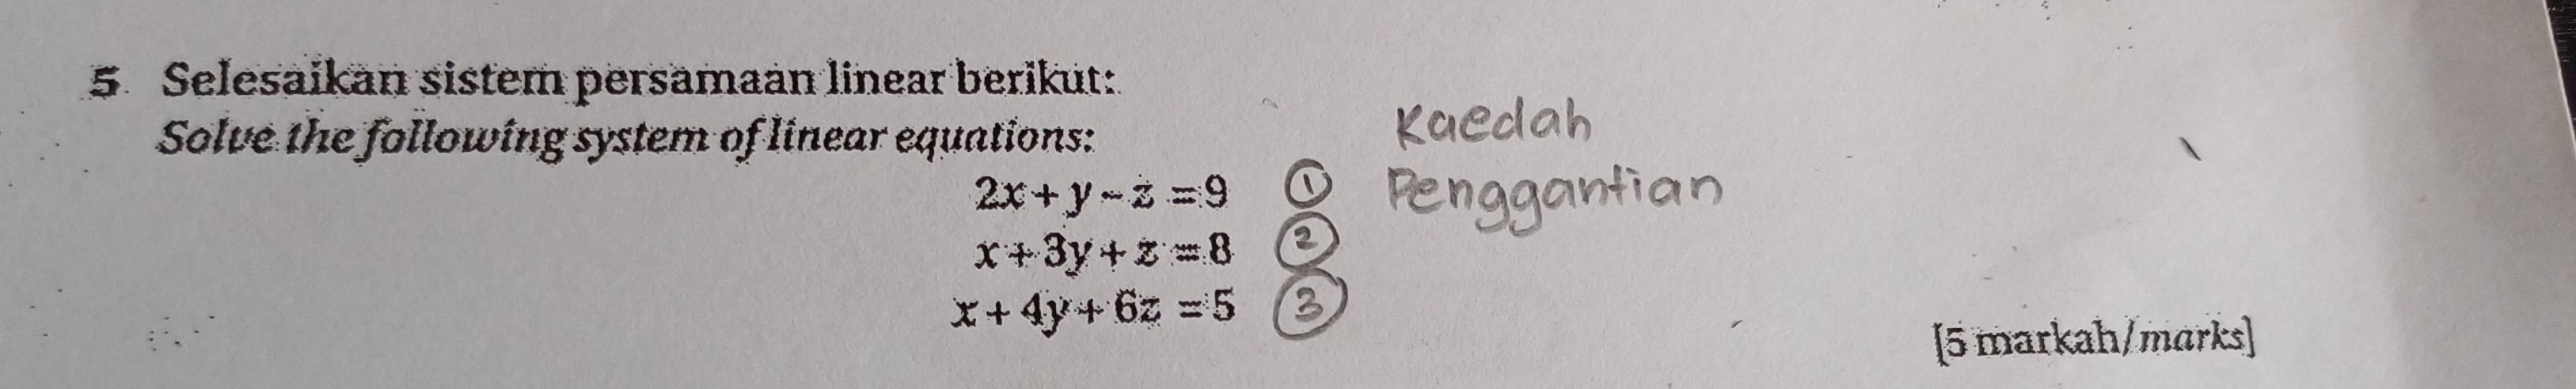 5. Selesaikan sistem persamaan linear berikut:
Solve the following system of linear equations:
2x + y - z = 9 ① Kaedah Penggantian
x + 3y + z = 8 ②
x + 4y + 6z = 5 ③
[5 markah/marks]